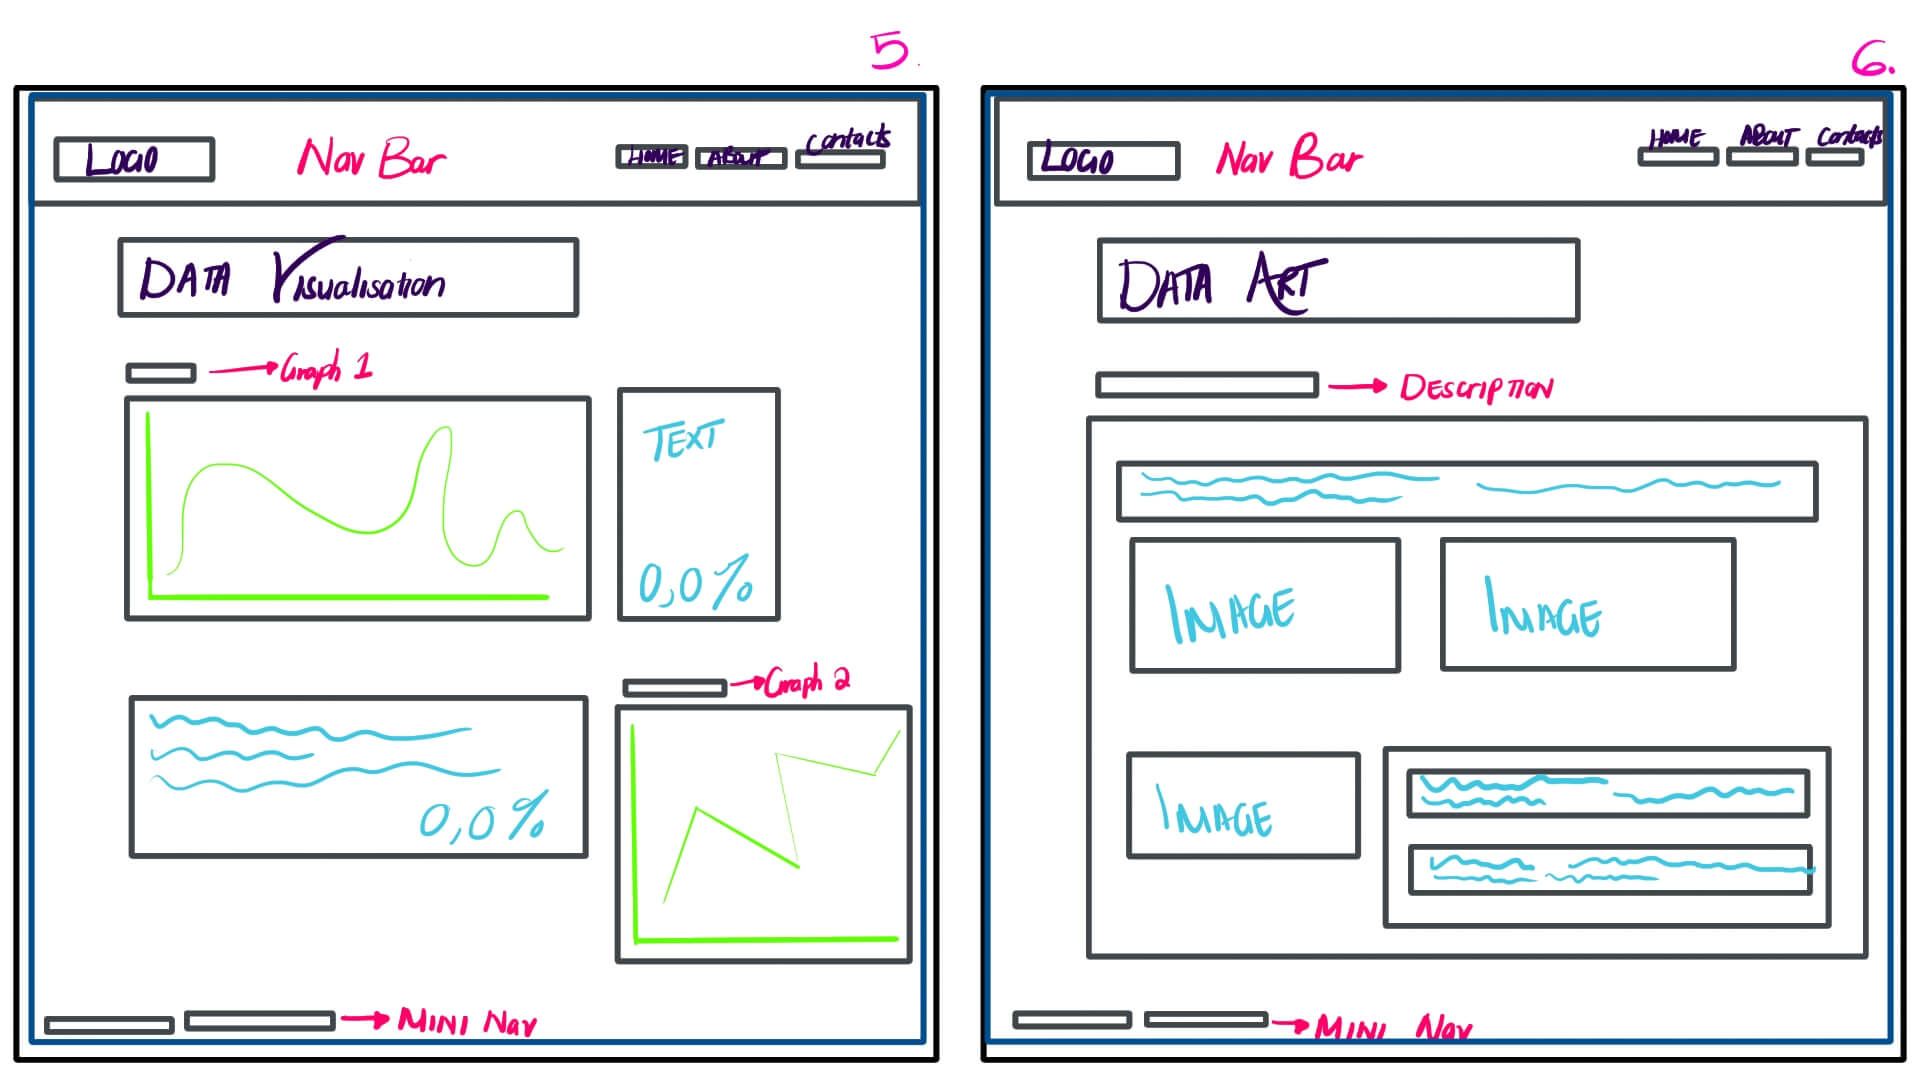 5.
LOGO
Nav Bar
HOME
ABOUT
Contacts
DATA Visualisation
Graph 1
TEXT
0,0%
Graph 2
0,0%
MINI Nav
6.
LOGO
Nav Bar
HOME
ABOUT
Contacts
DATA ART
DESCRIPTION
IMAGE
IMAGE
IMAGE
MINI Nav